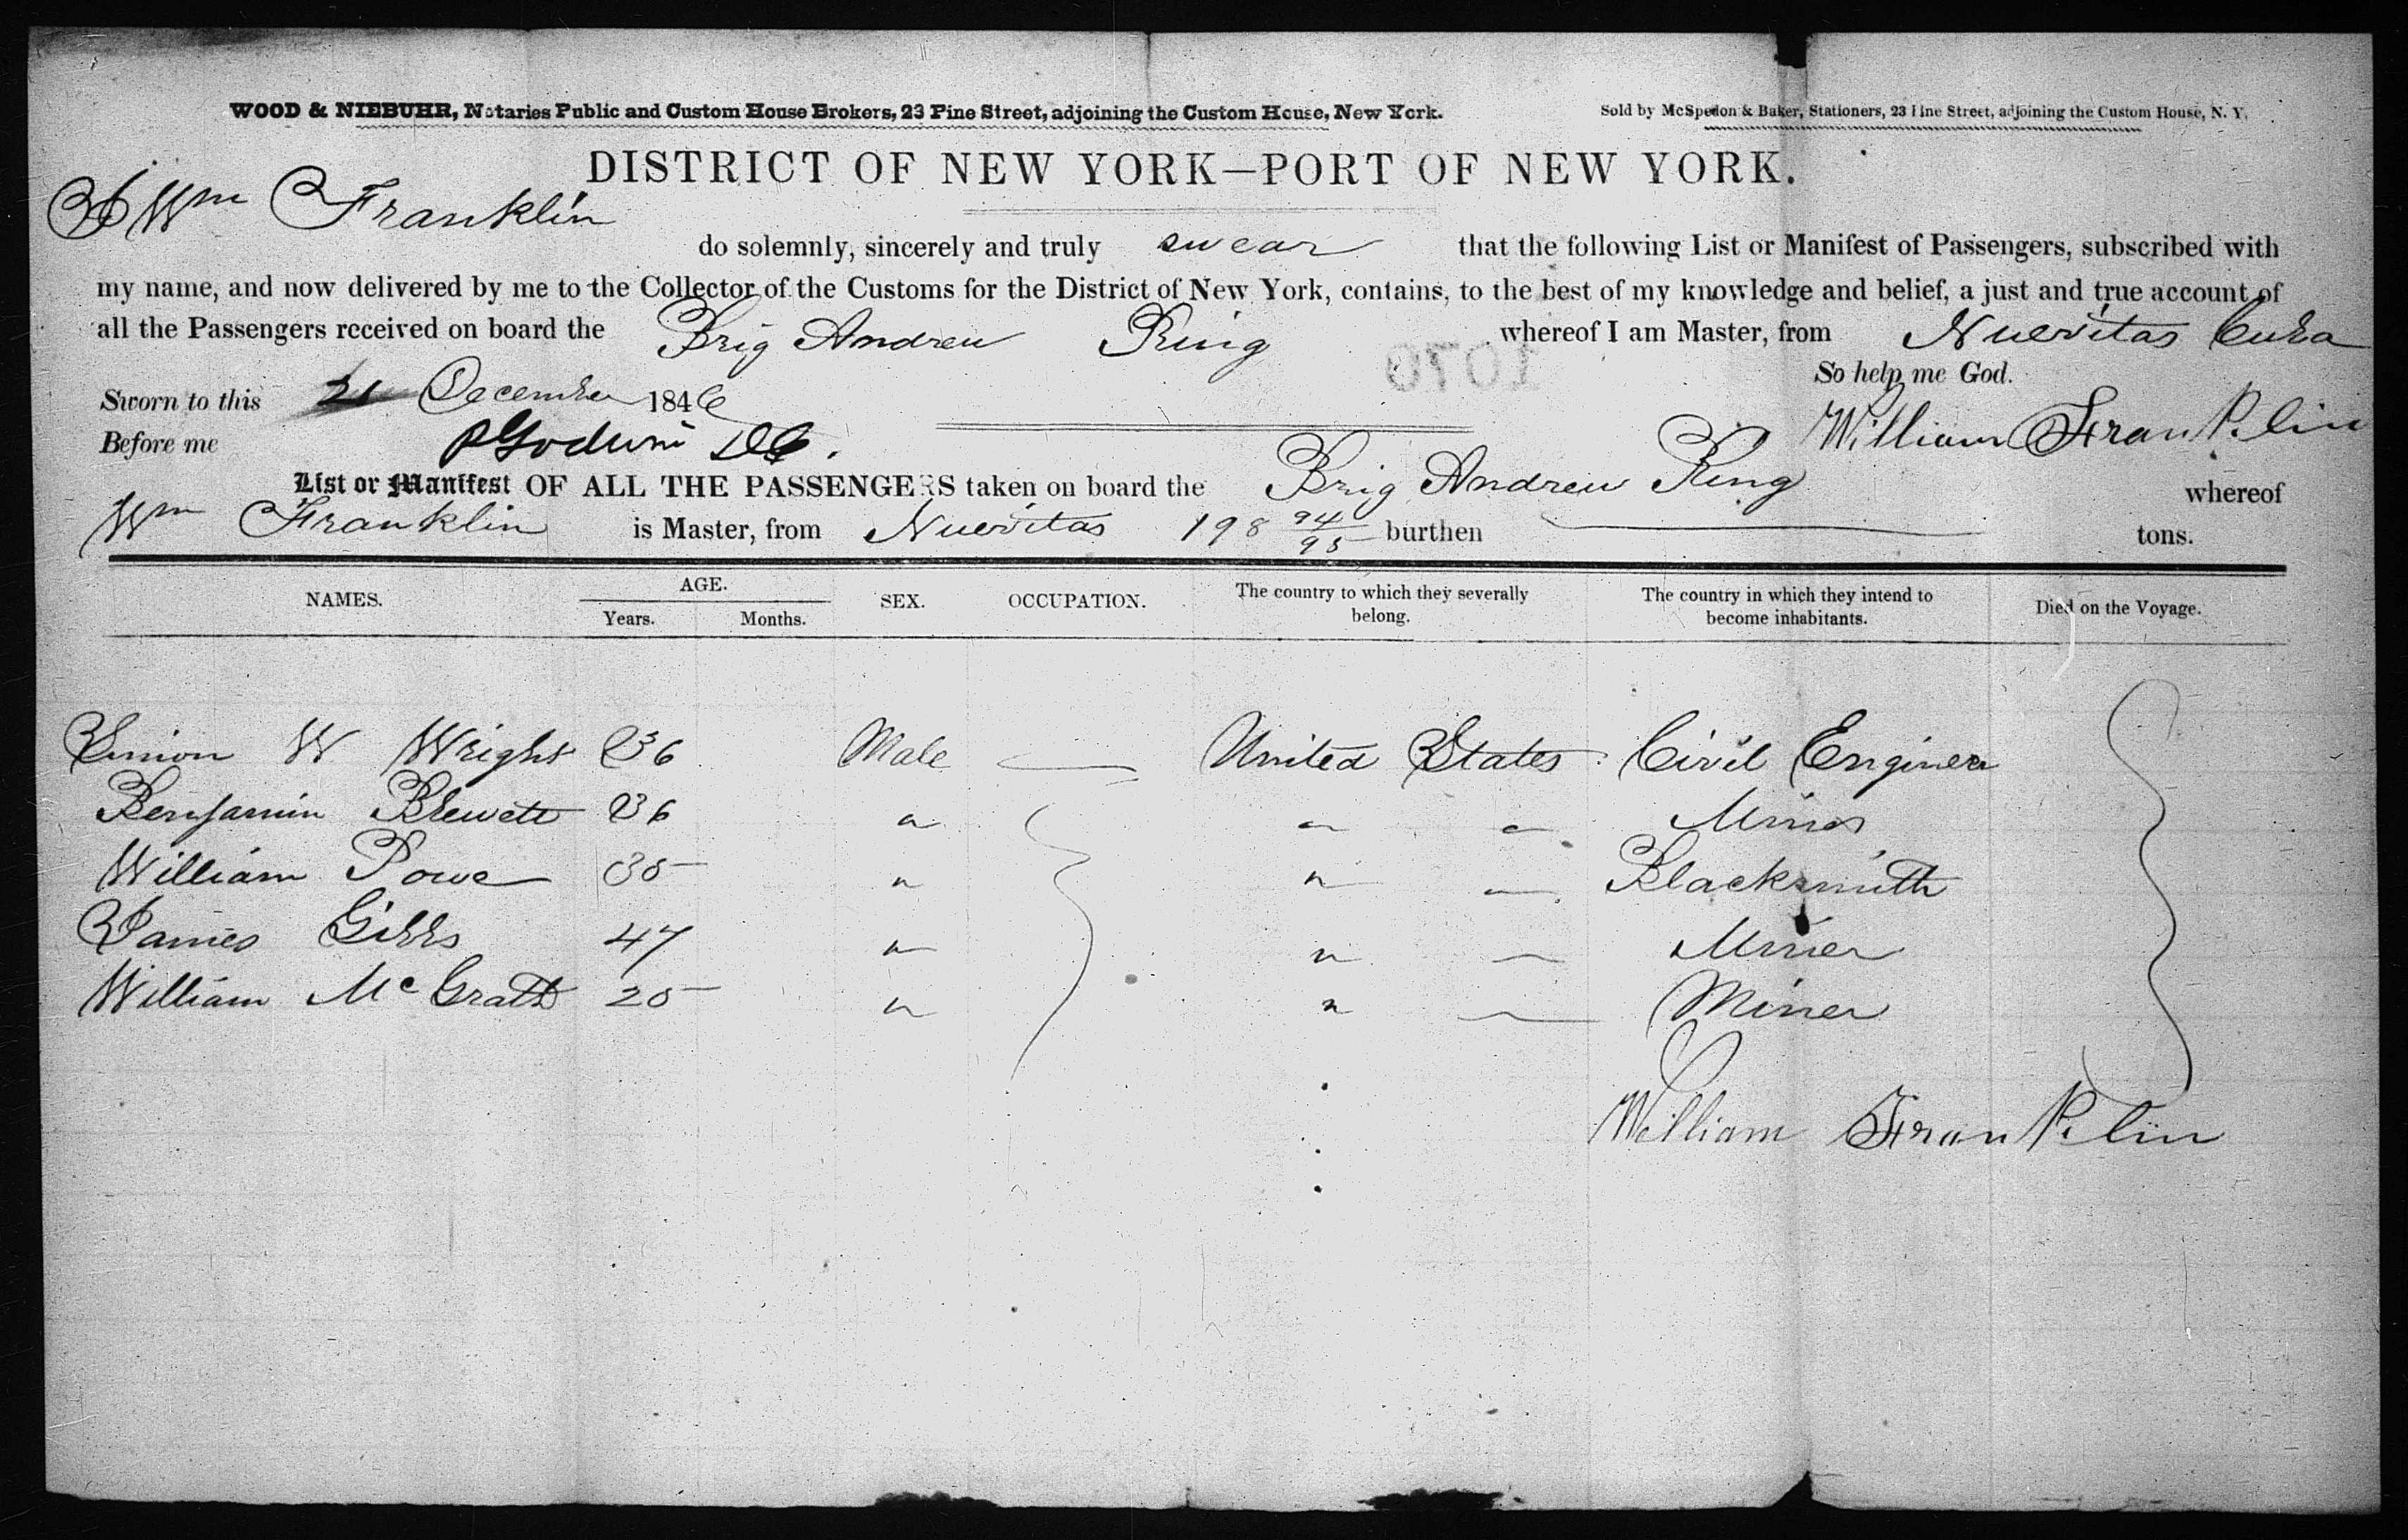 WOOD & NIEBUHR, Notaries Public and Custom House Brokers, 23 Pine Street, adjoining the Custom House, New York.
Sold by McSpedon & Baker, Stationers, 23 Pine Street, adjoining the Custom House, N. Y.
DISTRICT OF NEW YORK—PORT OF NEW YORK.
I Wm Franklin
do solemnly, sincerely and truly swear that the following List or Manifest of Passengers, subscribed with
my name, and now delivered by me to the Collector of the Customs for the District of New York, contains, to the best of my knowledge and belief, a just and true account of
all the Passengers received on board the Brig Andrew Ring whereof I am Master, from Nuevitas Cuba
1070
So help me God.
Sworn to this 21 December 1846
William Franklin
Before me
List or Manifest OF ALL THE PASSENGERS taken on board the Brig Andrew Ring whereof
Wm Franklin is Master, from Nuevitas 198 94/95 burthen tons.
NAMES. AGE. SEX. OCCUPATION. The country to which they severally belong. The country in which they intend to become inhabitants. Died on the Voyage.
Years. Months.
W Wright 36 Male — United States Civil Engineer
Benjamin Blewett 36 " " " Miner
William Powe 35 " " — Blacksmith
James Gibbs 47 " " — Miner
William McGrath 25 " " — Miner
William Franklin